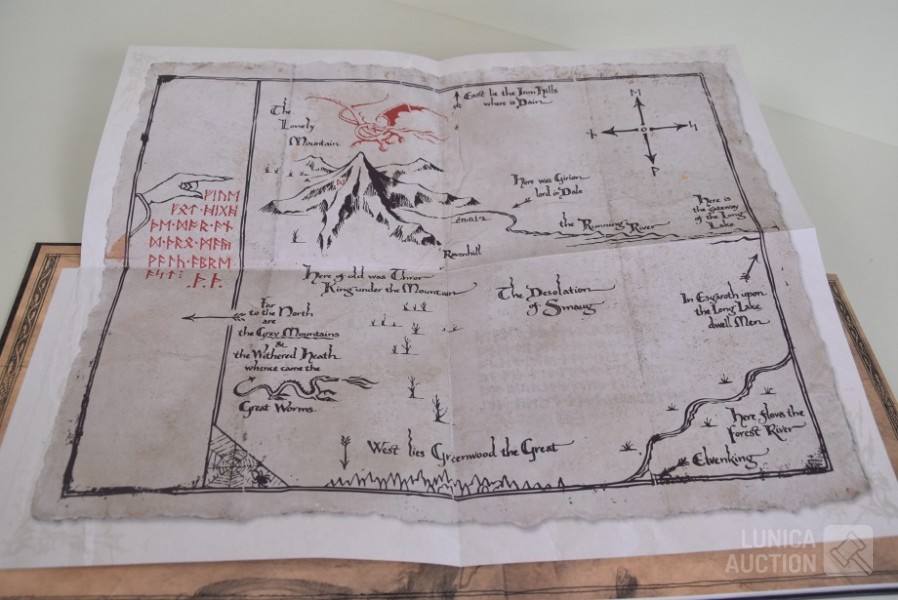 The
Lonely
Mountain
East lie the Iron Hills
where is Dain.
Here was Girion
lord in Dale
Here is
the gateway
of the Long
Lake
the Running River
Ravenhill
Here of old was Thror
King under the Mountain
The Desolation
of Smaug
In Esgaroth upon
the Long Lake
dwell Men
Far
to the North
are
the Grey Mountains
&
the Withered Heath
whence came the
Great Worms.
West lies Greenwood the Great
Here flows the
Forest River
Elvenking
LUNICA
AUCTION